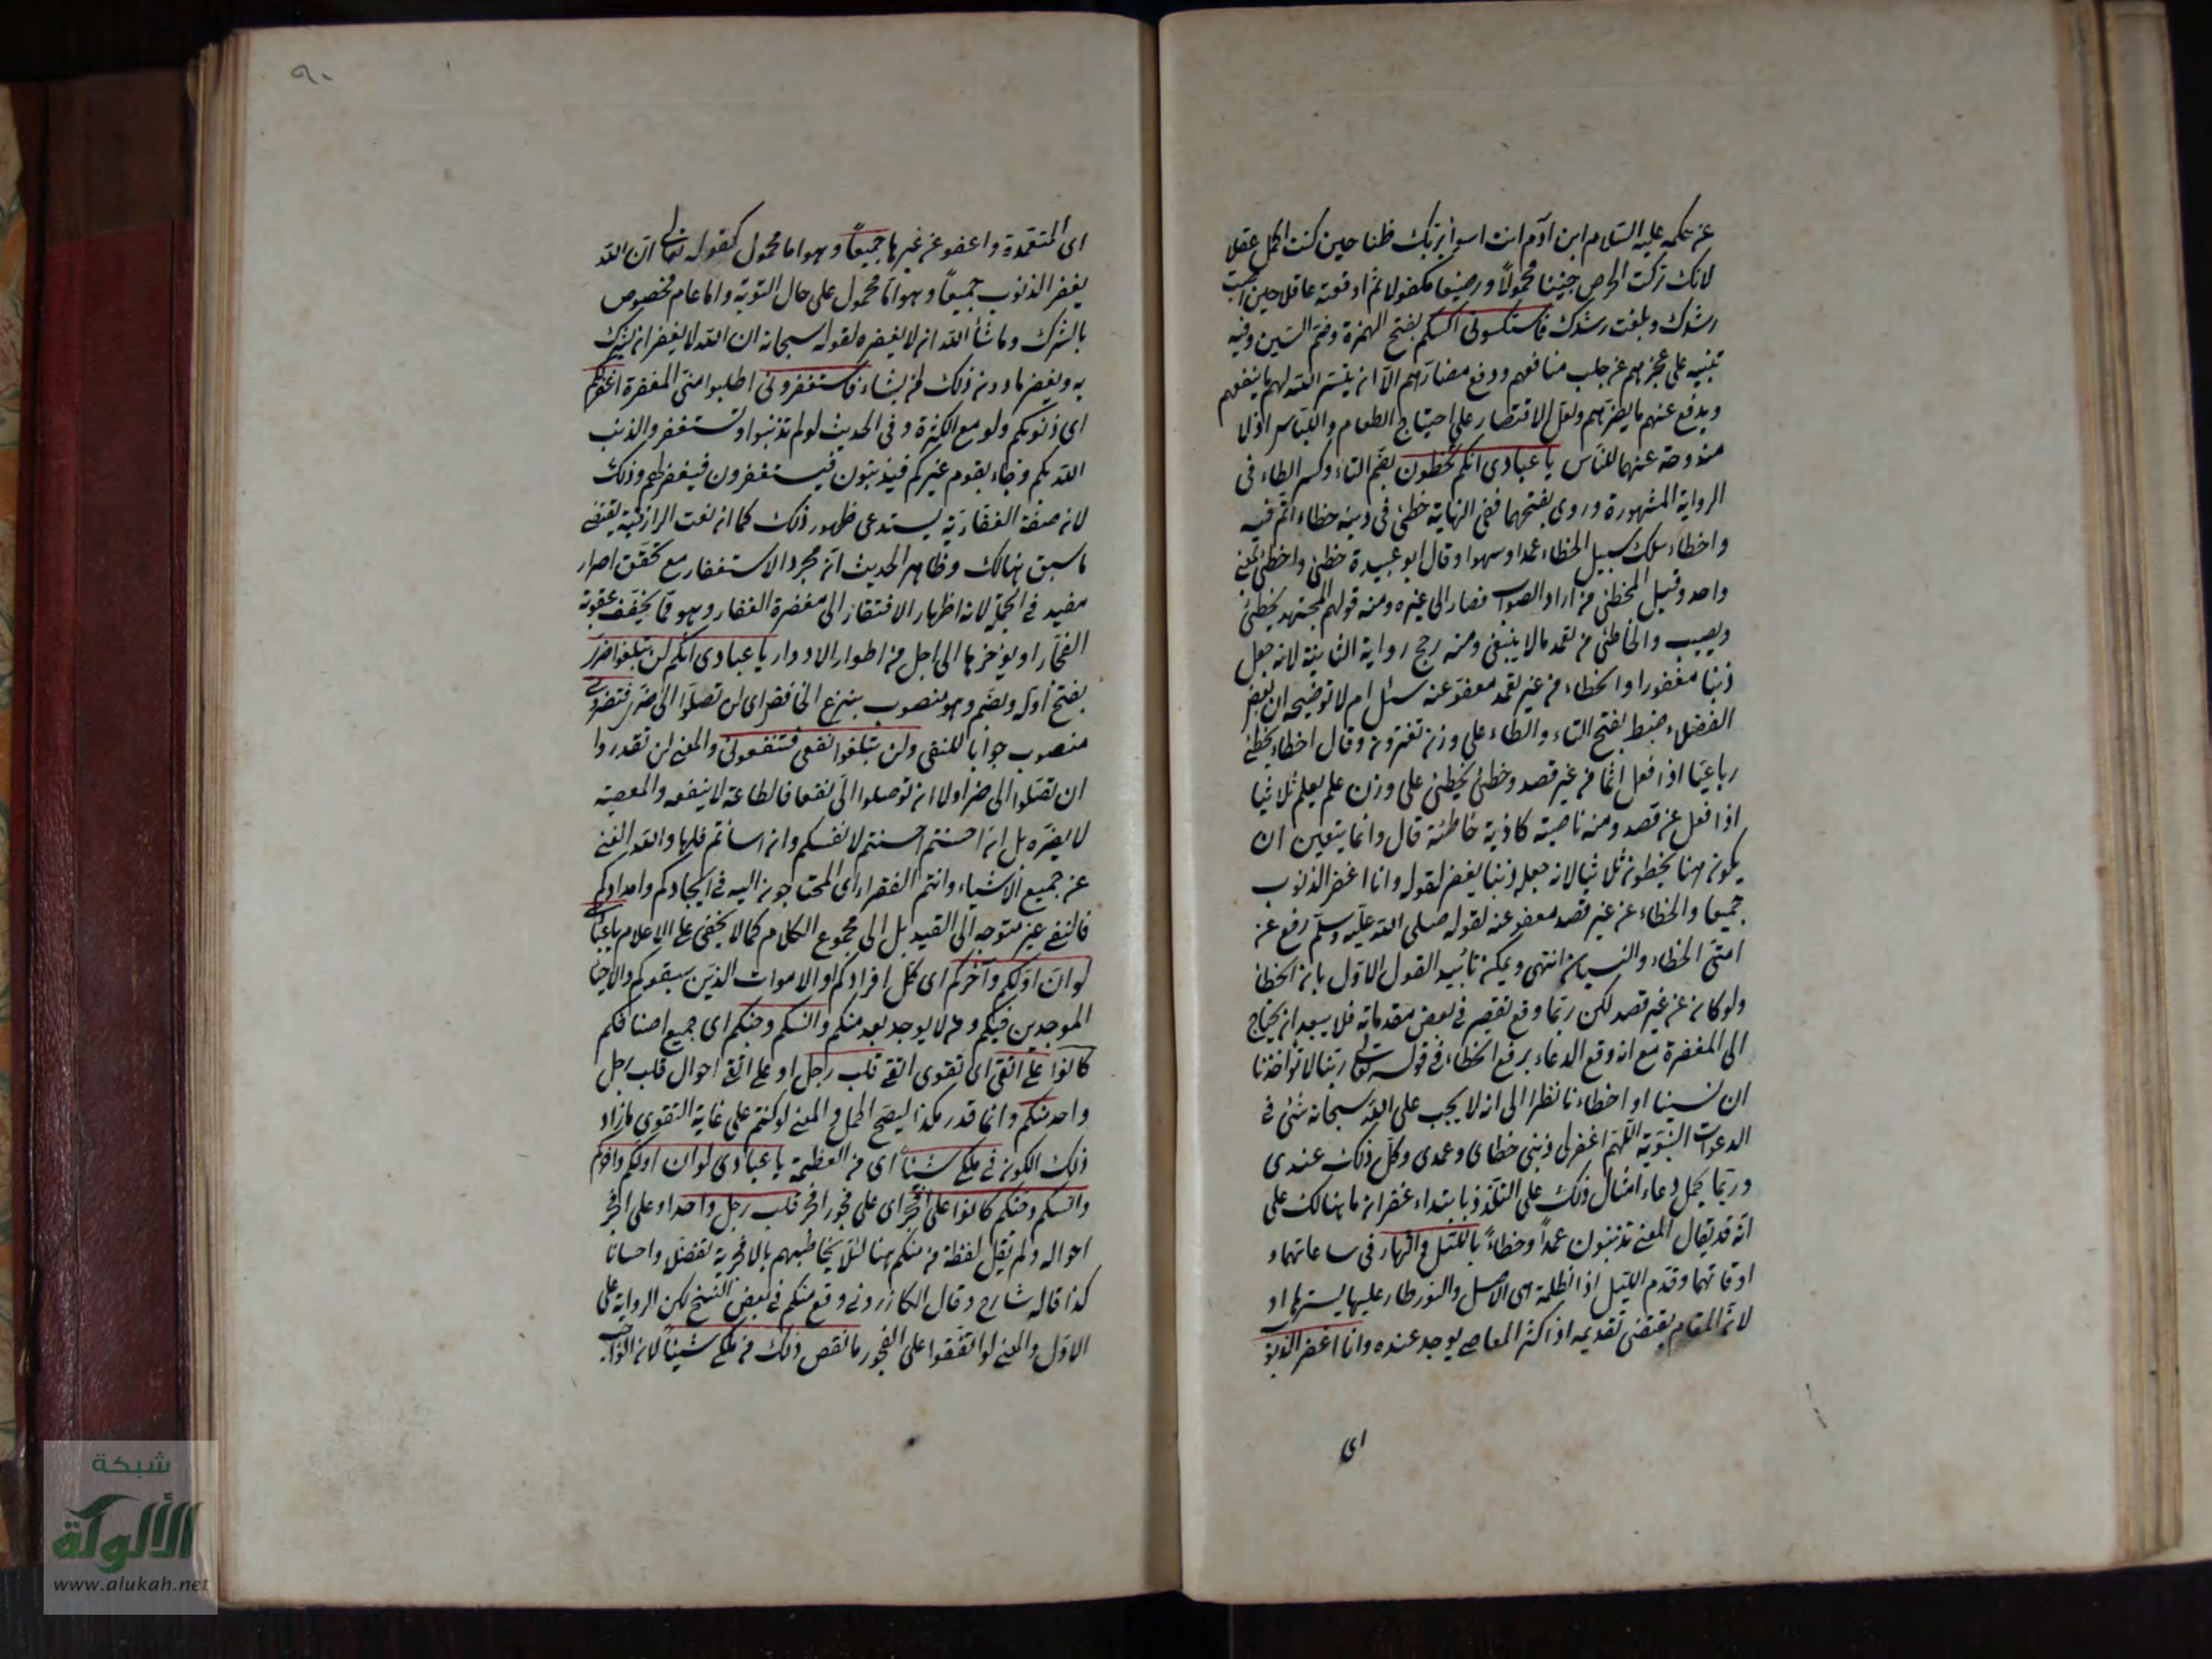 عن حكمه عليه السلام ابن آدم انت اسوأ بربك ظنا حين كنت اكمل عقلا
لانك تركت الحرص جنينا محمولا ورضيعا مكفولا ثم ادرعته عاقلا حين اصبت
رشدك وبلغت رشدك فاستكسوني اكسكم بفتح الهمزة وضم السين وفيه
تنبيه على عجزهم عن جلب منافعهم ودفع مضارهم الا ان ييسر الله لهم ما ينفعهم
ويدفع عنهم ما يضرهم ولعل الاقتصار على احتياج الطعام واللباس اذ لا
مندوحة عنهما للناس يا عبادي انكم تخطئون بضم التاء وكسر الطاء في
الرواية المشهورة وروي بفتحهما ففي النهاية خطئ في دينه خطاء اثم فيه
واخطاء سلك سبيل الخطاء عمدا وسهوا وقال ابو عبيدة خطئ واخطئ بمعنى
واحد وقيل المخطئ من اراد الصواب فصار الى غيره ومنه قولهم المجتهد يخطئ
ويصيب والخاطئ من تعمد ما لا ينبغي ومنه رجح رواية الثانية لانه جعل
ذنبا مغفورا والخطاء من غير تعمد معفو عنه سئل ام لا توضيحه ان بعض
الفضلاء ضبط بفتح التاء والطاء على وزن تفترون وقال اخطاء يخطئ
رباعيا اذا فعل اثما من غير قصد وخطئ يخطئ على وزن علم يعلم ثلاثيا
اذا فعل عن قصد ومنه ناصية كاذبة خاطئة قال وانما يتعين ان
يكون هنا يخطون ثلاثيا لانه جعله ذنبا يغفر لقوله وانا اغفر الذنوب
جميعا والخطاء عن غير قصد معفو عنه لقوله صلى الله عليه وسلم رفع عن
امتي الخطاء والنسيان انتهى ويمكن تأييد القول الاول بان الخطا
ولو كان عن غير قصد لكن ربما وقع تقصير في بعض مقدماته فلا يبعد ان يحتاج
الى المغفرة مع انه وقع الدعاء برفع الخطاء في قوله تعالى ربنا لا تواخذنا
ان نسينا او اخطاءنا نظرا الى انه لا يجب على الله سبحانه شئ في
الدعوات النبوية اللهم اغفر لي ذنبي خطاي وعمدي وكل ذلك عندي
وربما يحمل دعاء امثال ذلك على التلذذ بابتداء غفران ما هنالك على
انه قد يقال المعنى تذنبون عمدا وخطاء بالليل والنهار في ساعاتهما و
اوقاتهما وقدم الليل اذ الظلمة هي الاصل والنور طار عليها يسترها او
لان المقام يقتضي تقديمه اذ اكثر المعاصي يوجد عنده وانا اغفر الذنوب
اى
٩٠
اى المتعمدة واعفو عن غيرها جميعا وهو اما محمول كقوله تعالى ان الله
يغفر الذنوب جميعا وهو اما محمول على حال التوبة واما عام مخصوص
بالشرك وما شاء الله ان لا يغفره لقوله سبحانه ان الله لا يغفر ان يشرك
به ويغفر ما دون ذلك لمن يشاء فاستغفروني اطلبوا مني المغفرة اغفرلكم
اى ذنوبكم ولو مع الكثرة وفي الحديث لو لم تذنبوا وتستغفروا لذهب
الله بكم وجاء بقوم غيركم فيذنبون فيستغفرون فيغفر لهم وذلك
لان صفة الغفارية يستدعي ظهور ذلك كما ان نعت الرازقية يقتضي
ما سبق هنالك وظاهر الحديث ان مجرد الاستغفار مع تحقق اصرار
مفيد في الجملة لانه اظهار الافتقار الى مغفرة الغفار وهو مما يخفف عقوبة
الفجار او يؤخرها الى اجل من اطوار الادوار يا عبادي انكم لن تبلغوا ضري
بفتح اوله ويضم وهو منصوب بنزع الخافض اى لن تصلوا الى ضري فتضروني
منصوب جوابا للنفي ولن تبلغوا نفعي فتنفعوني والمعنى لن تقدروا
ان تصلوا الي ضرا ولا ان توصلوا الي نفعا فالطاعة لا ينفعه والمعصية
لا يضره بل ان احسنتم احسنتم لانفسكم وان اسأتم فلها والله الغني
عن جميع الاشياء وانتم الفقراء اى المحتاجون اليه في ايجادكم وامدادكم
فالنفي غير متوجه الى القيد بل الى مجموع الكلام كما لا يخفى على الاعلام يا عبادي
لو ان اولكم وآخركم اى كل افرادكم او الاموات الذين سبقوكم والاحيا
الموجدين فيكم ومن لا يوجد بعد منكم وانسكم وجنكم اى جميع اصنافكم
كانوا على اتقى اى تقوى اتقى قلب رجل او على اتقى احوال قلب رجل
واحد منكم وانما قدر هكذا ليصح الحمل والمعنى لو كنتم على غاية التقوى ما زاد
ذلك الكون في ملكي شيئا اى من العظمة يا عبادي لو ان اولكم وآخركم
وانسكم وجنكم كانوا على افجر اى على فجور افجر قلب رجل واحد او على افجر
احواله ولم يقل لفظة من منكم هنا لئلا يخاطبهم بالافجرية تفضلا واحسانا
كذا قاله شارح وقال الكازروني وقع منكم في بعض النسخ لكن الرواية على
الاول والمعنى لو اتفقوا على الفجور ما نقص ذلك من ملكي شيئا لان الواجب
شبكة
الألوكة
www.alukah.net